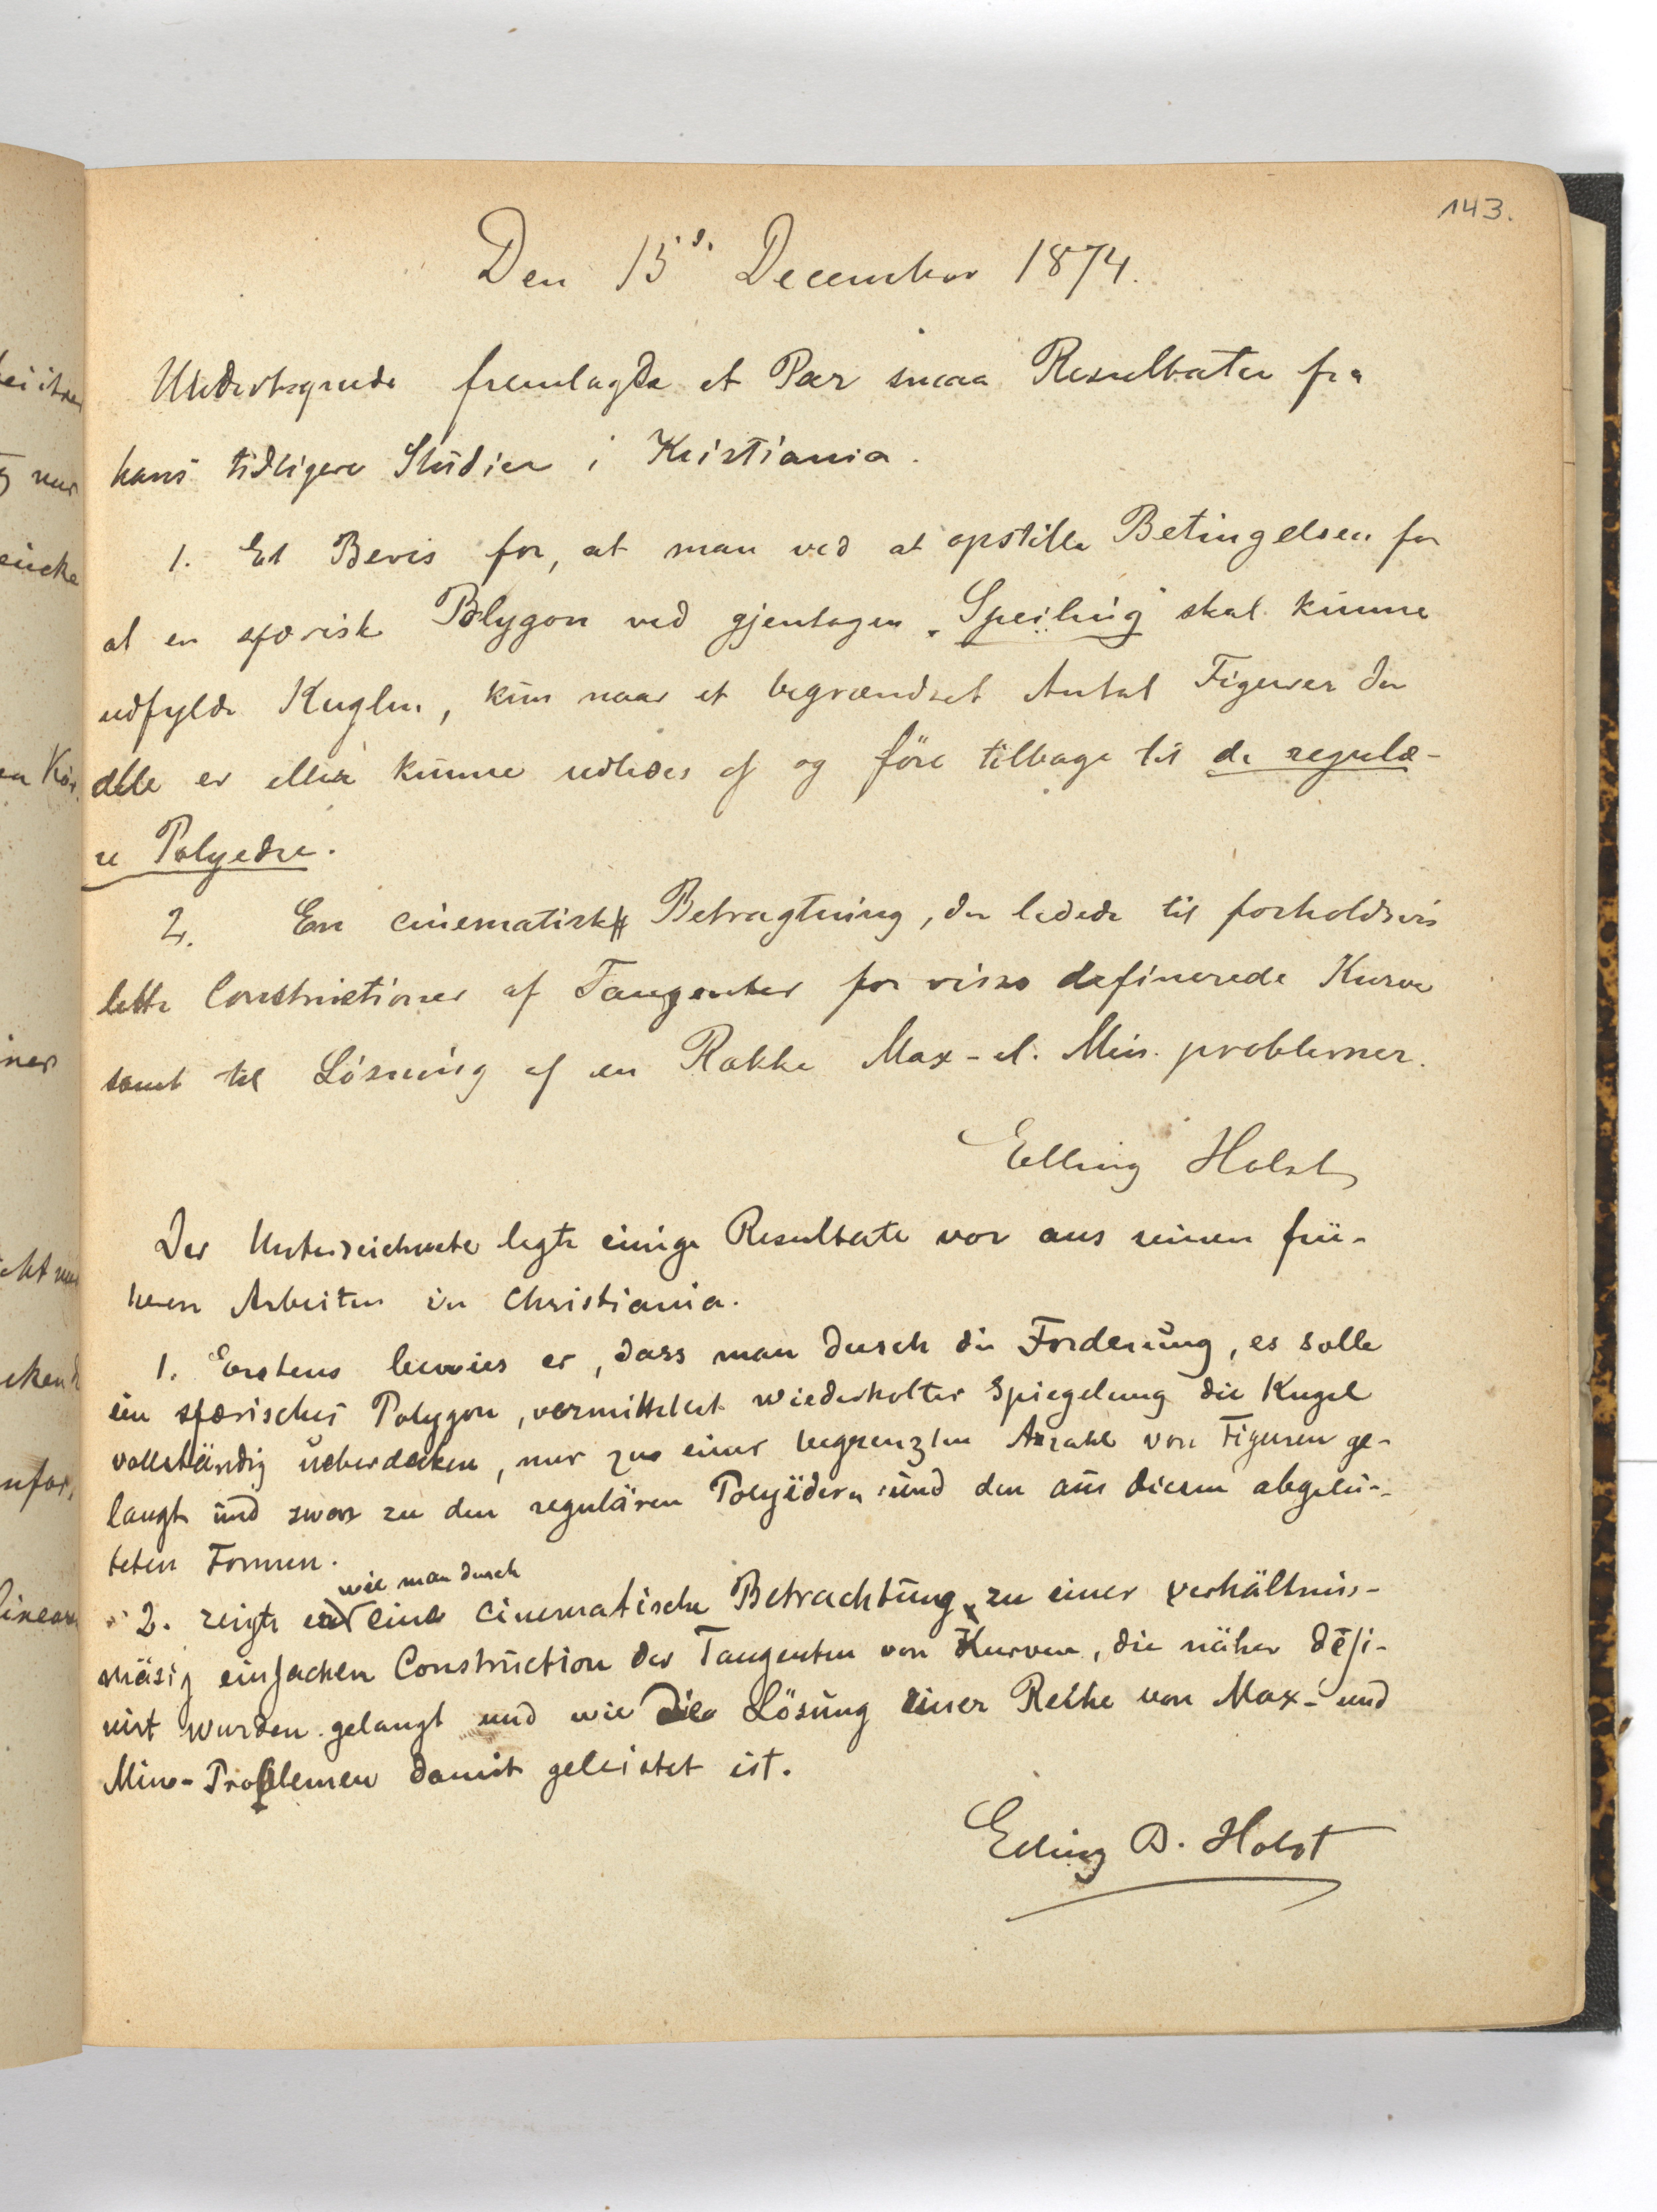 143.
Den 15d. December 1874.
Undertegnede fremlagde et Par smaa Resultater fra
hans tidligere Studier i Kristiania.
1. Et Bevis for, at man ved at opstille Betingelsen for
at en sfærisk Polygon ved gjentagen „Speiling" skal kunne
udfylde Kuglen, kun naar et begrændset Antal Figurer der
alle er eller kunne udledes af og före tilbage til de regulæ-
re Polyedre.
2. En cinematisk Betragtning, der ledede til forholdsvis
lette Constructioner af Tangenter for visse definerede Kurver
samt til Lösning af en Række Max- el. Min. problemer.
Elling Holst
Der Unterzeichnete legte einige Resultate vor aus seinen frü-
heren Arbeiten in Christiania.
1. Erstens bewies er, dass man durch die Forderung, es solle
ein sfærisches Polygon, vermittelst wiederholter Spiegelung die Kugel
vollständig ueberdecken, nur zu einer begrenzten Anzahl von Figuren ge-
langt und zwar zu den regulären Polyëdern und den aus diesen abgelei-
teten Formen.
wie man durch
2. zeigte er eine cinematische Betrachtung zu einer verhältniss-
mäsig einfachen Construction der Tangenten von Kurven, die näher defi-
nirt wurden gelangt und wie die Lösung einer Reihe von Max- und
Min-Problemen damit geleistet ist.
Elling B. Holst